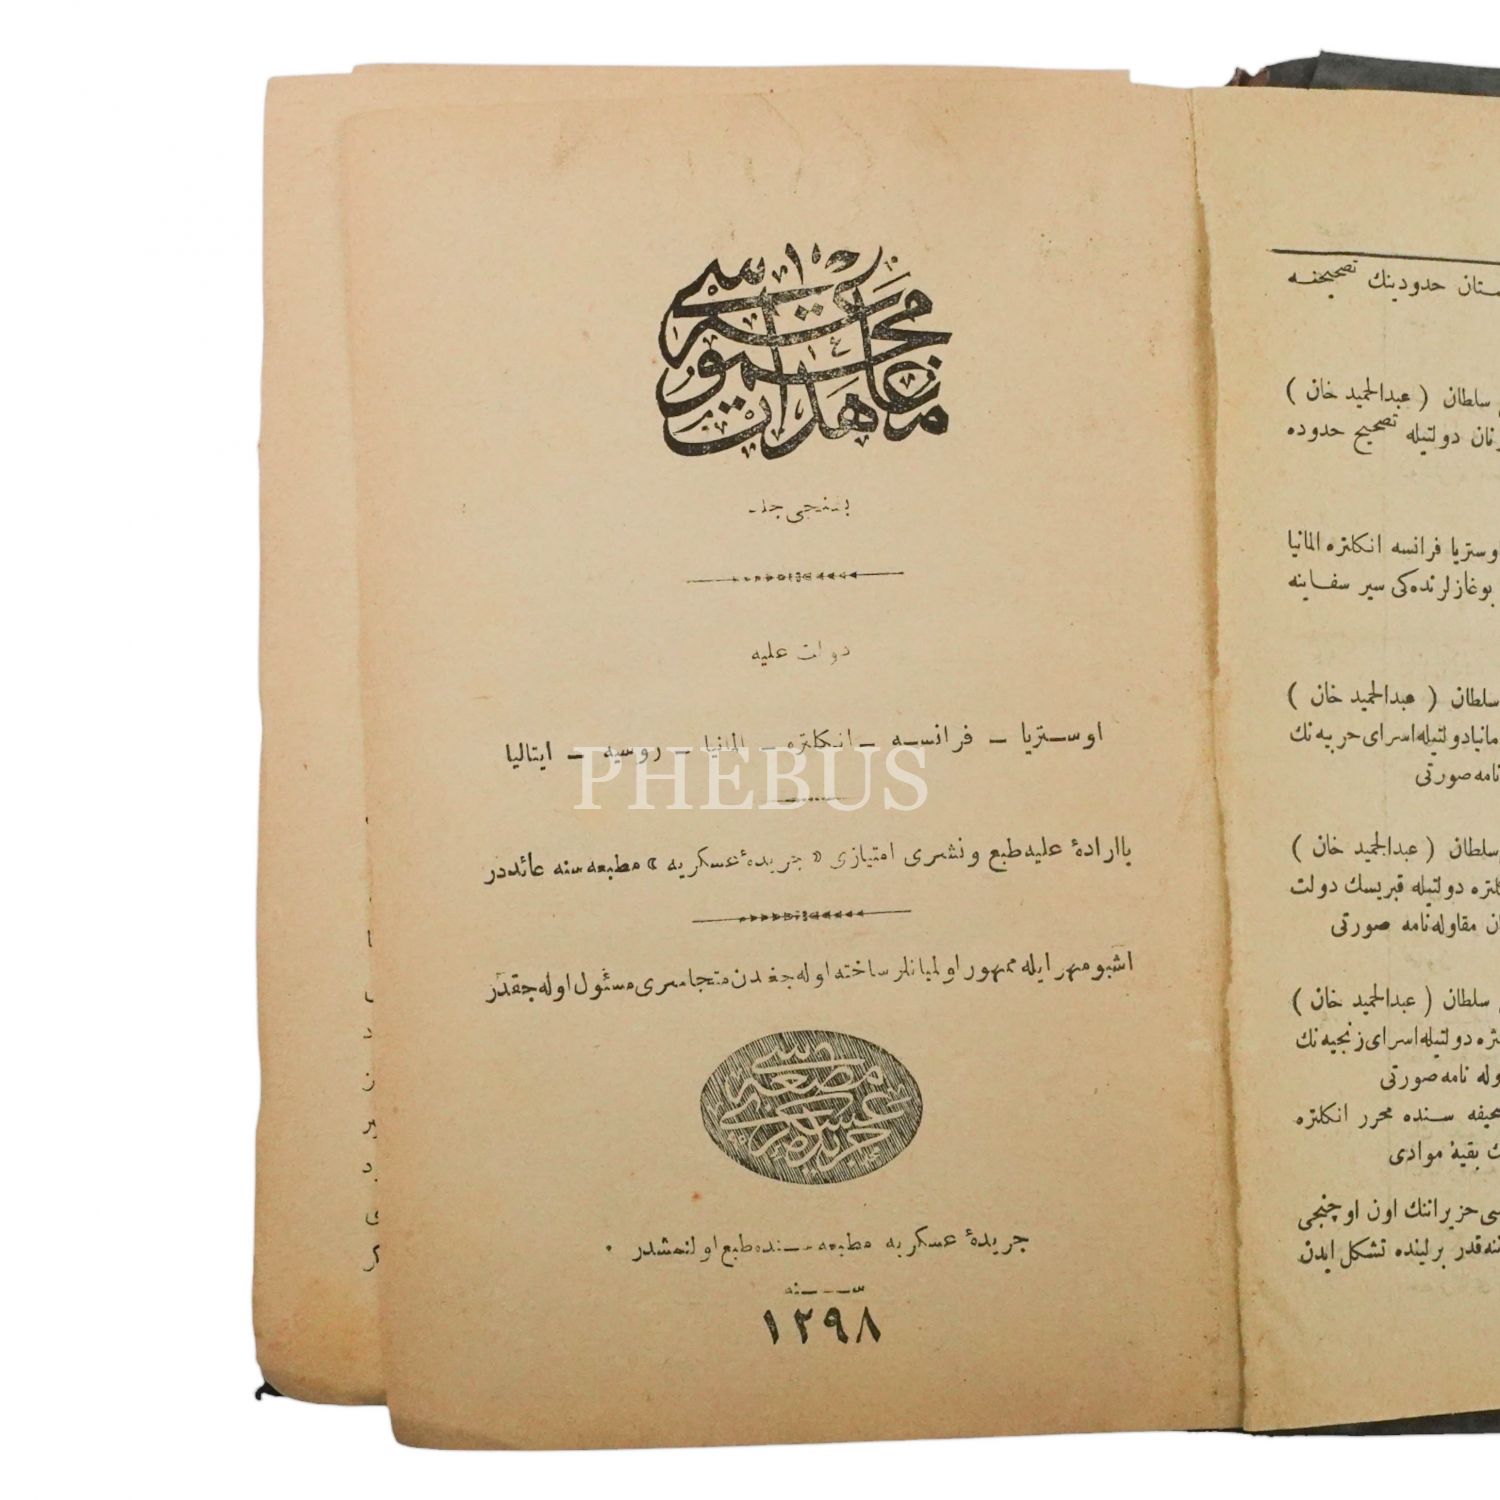 معاهدات مجموعه سی
بشنجی جلد
دولت علیه
اوستریا – فرانسه – انکلتره – المانیا – روسیه – ایتالیا
باارادهٔ علیه طبع ونشری امتیازی « جریدهٔ عسکریه » مطبعه سنه عائددر
اشبو مهر ایله ممهور اولمیانلر ساخته اوله جغندن متجاسری مسئول اوله جقدر
جریدهٔ عسکریه مطبعه سی
جریدهٔ عسکریه مطبعه سنده طبع اولنمشدر
سنه
١٢٩٨
PHEBUS
ستان حدودینك تصحیحنه
سلطان ( عبدالحمید خان )
دولتیله تصحیح حدوده
اوستریا فرانسه انکلتره المانیا
بوغازلرنده کی سیر سفاینه
سلطان ( عبدالحمید خان )
مانیا دولتیله اسرای حربیه نك
نامه صورتی
سلطان ( عبدالحمید خان )
کلتره دولتیله قبریسك دولت
مقاوله نامه صورتی
سلطان ( عبدالحمید خان )
دولتیله اسرای زنجیه نك
وله نامه صورتی
حیفه سنده محرر انکلتره
بقیهٔ موادی
سی حزیراننك اون اوچنجی
ننه قدر برلینده تشکل ایدن